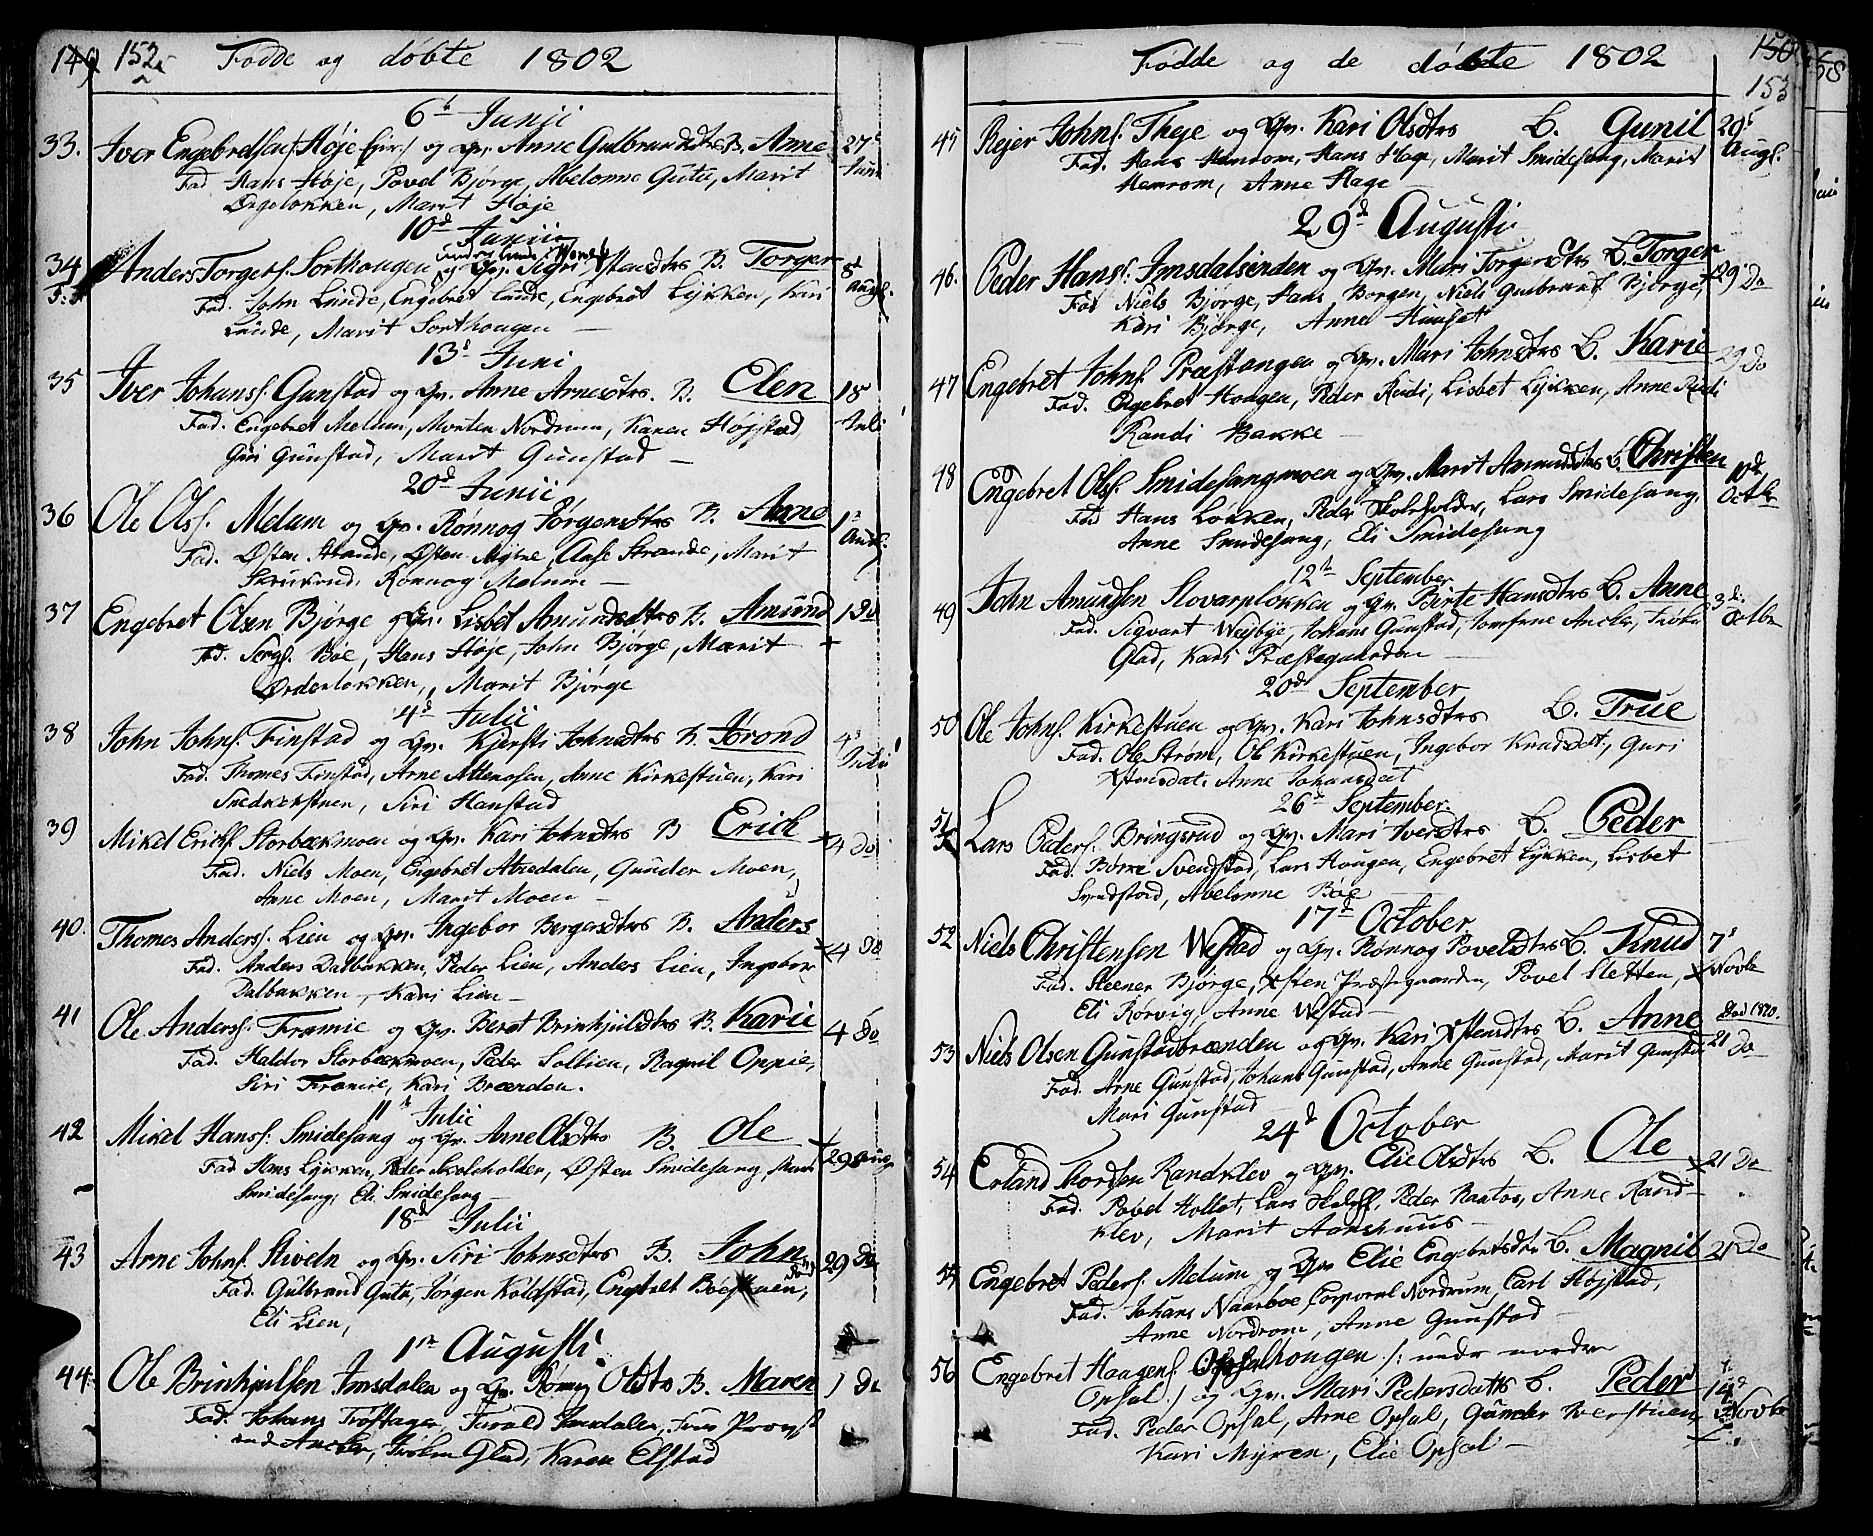 149 152
Fødde og døbte 1802
6te Junii
33. Iver Engebretsen Høje og Qv. Anne Gulbrandsdtr B. Anne 27
Juni
Fad. Hans Høje, Povel Bjørge, Abelonne Gutu, Marit
Løkken, Marit Høje
10d Junii
34 Anders Torgers. Sorthougen og Qv. Sigri Ostensdtrs B. Torger 8
Augs.
Fad. John Lunde, Engebret Lunde, Engebret Lykken, Kari
Lunde, Marit Sorthougen
13d Juni
35 Iver Johanss. Gunstad og Qv. Anne Arnesdtrs. B. Elen 18
Juli
Fad. Engebret Melum, Morten Nordrum, Karen Højstad
Guri Gunstad, Marit Gunstad
20d Junii
36 Ole Olss. Melum og Qv. Rønnog Jørgensdtrs B. Anne 1
Augs.
Fad. Østen Strande, Østen Myre, Aase Strande, Marit
Rønnog Melum
37 Engebret Olsen Bjørge og Qv. Lisbet Amundsdtrs B. Amund 1 Do
Fad. Bøe, Hans Høje, John Bjørge, Marit
Marit Bjørge
4d Julii
38 John Johns. Finstad og Qv. Kjersti Johnsdtrs B. Jørond 4
Julii
Fad. Thomes Finstad, Arne Anne Kirkestuen, Kari
Snedkerstuen, Siri Hanstad
39 Mikel Erichs. Storbækmoen og Qv. Kari Johnsdtrs B Erich 4 Do
Fad. Niels Moen, Engebret Atnedalen, Gunder Moen,
Anne Moen, Marit Moen
40. Thomes Anderss. Lien og Qv. Ingebor Bergersdtrs B. Anders 4 Do
Fad. Anders Dalbakken, Peder Lien, Anders Lien, Ingebor
Dalbakken, Kari Lien
41 Ole Anderss. Fræmie og Qv. Beret Brinhjulsdtrs B. Karie 4 Do
Fad. Haldor Storbækmoen, Peder Sollien, Ragnil Oppie,
Siri Fræmie, Kari Brænden.
11te Julii
42 Mikel Hanss. Smidesang og Qv. Anne Olsdtrs B. Ole 29 Aug
Fad Hans Lykken, Peder Skoleholder, Østen Smidesang,
Smidesang, Eli Smidesang
18d Julii
43 Arne Johns. Stiveln og Qv. Siri Johnsdtrs B. John 29 Do
død
Fad. Gulbrand Gutu, Jørgen Koldstad, Engebret Bøestuen,
Eli Lien,
1te Augusti
44 Ole Brinhjulsen Imsdalen og Qv. Rønog Olsdtr B. Maren 1 Do
Fad. Johans Trøftager, Imsdalen, Frue Provst
Ancher, Frøken Glad, Karen Elstad
150 153
Fødde og de døbte 1802
45 Rejer Johns. Theje og Qv. Kari Olsdtrs B. Gunil 29
Augs.
Fad. Hans Hemrom, Hans Hage, Marit Smidesang, Marit
Hemrom, Anne Hage
29d Augusti
46. Peder Hanss. Imsdalsenden og Qv. Mari Torgersdtrs B. Torger 29 Do
Fad Niels Bjørge, Hans Borgen, Niels Gulbrands. Bjørge,
Kari Bjørge, Anne
47 Engebret Johns. Præstangen og Qv. Mari Johnsdtrs B. Karie 29 Do
Fad. Engebret Hougen, Peder Rudi, Lisbet Lykken, Anne Rudi
Randi Bakke
48 Engebret Olss. Smidesangmoen og Qv. Marit Amundsdtrs B. Christen
Octbr
Fad Hans Løkken, Peder Skoleholder, Lars Smidesang
Anne Smidesang, Eli Smidesang
12te September
49 John Amundsen Stovarpløkken og Qv. Birte Hansdtrs B. Anne 3
Octbr
Fad. Sigvart Wejbye, Johans Gunstad, Jomfrue Ancher, Frøken
Glad, Kari Præstegaarden
20de September
50 Ole Johns. Kirkestuen og Qv. Kari Johnsdtrs B. True
Fad. Ole Strøm, Ole Kirkestuen, Ingebor Knudsdat., Guri
Anne Johansdat
26d September
51 Lars Peders. Bringsrud og Qv. Mari Iversdtrs B. Peder
Fad. Børre Svendstad, Lars Hougen, Engebret Lykken, Lisbet
Svendstad, Abelonne Bøe
17d October
52 Niels Christensen Westad og Qv. Rønnog Povelsdtrs B. Knud 7
Novbr
Fad. Steener Bjørge, Østen Præstegaarden, Povel Sletten,
Eli Rørvig, Anne Westad
Død 1820.
53 Niels Olsen Gunstadbrænden og Qv. Kari Østensdtrs B. Anne 21 Do
Fad. Arne Gunstad, Johans Gunstad, Anne Gunstad, Marit Gunstad
Mari Gunstad
24d October
54 Erland Thordsen Randklev og Qv. Elie Olsdtrs B. Ole 21 Do
Fad. Povel Lars Peder Anne Rand-
klev, Marit Aarehuus
55 Engebret Peders. Melum og Qv Elie Engebretsdtr B. Magnil 21 Do
Fad. Johans Naarboe, Corporal Nordrum, Carl Højstad,
Anne Nordrom, Anne Gunstad
56 Engebret Haagens. Opsalhougen /: undr nordre
Opsal / og Qv. Mari Pedersdatts B. Peder 14d
Novbr
Fad. Peder Opsal, Arne Opsal, Gunder Iverstuen
Kari Myren, Elie Opsal